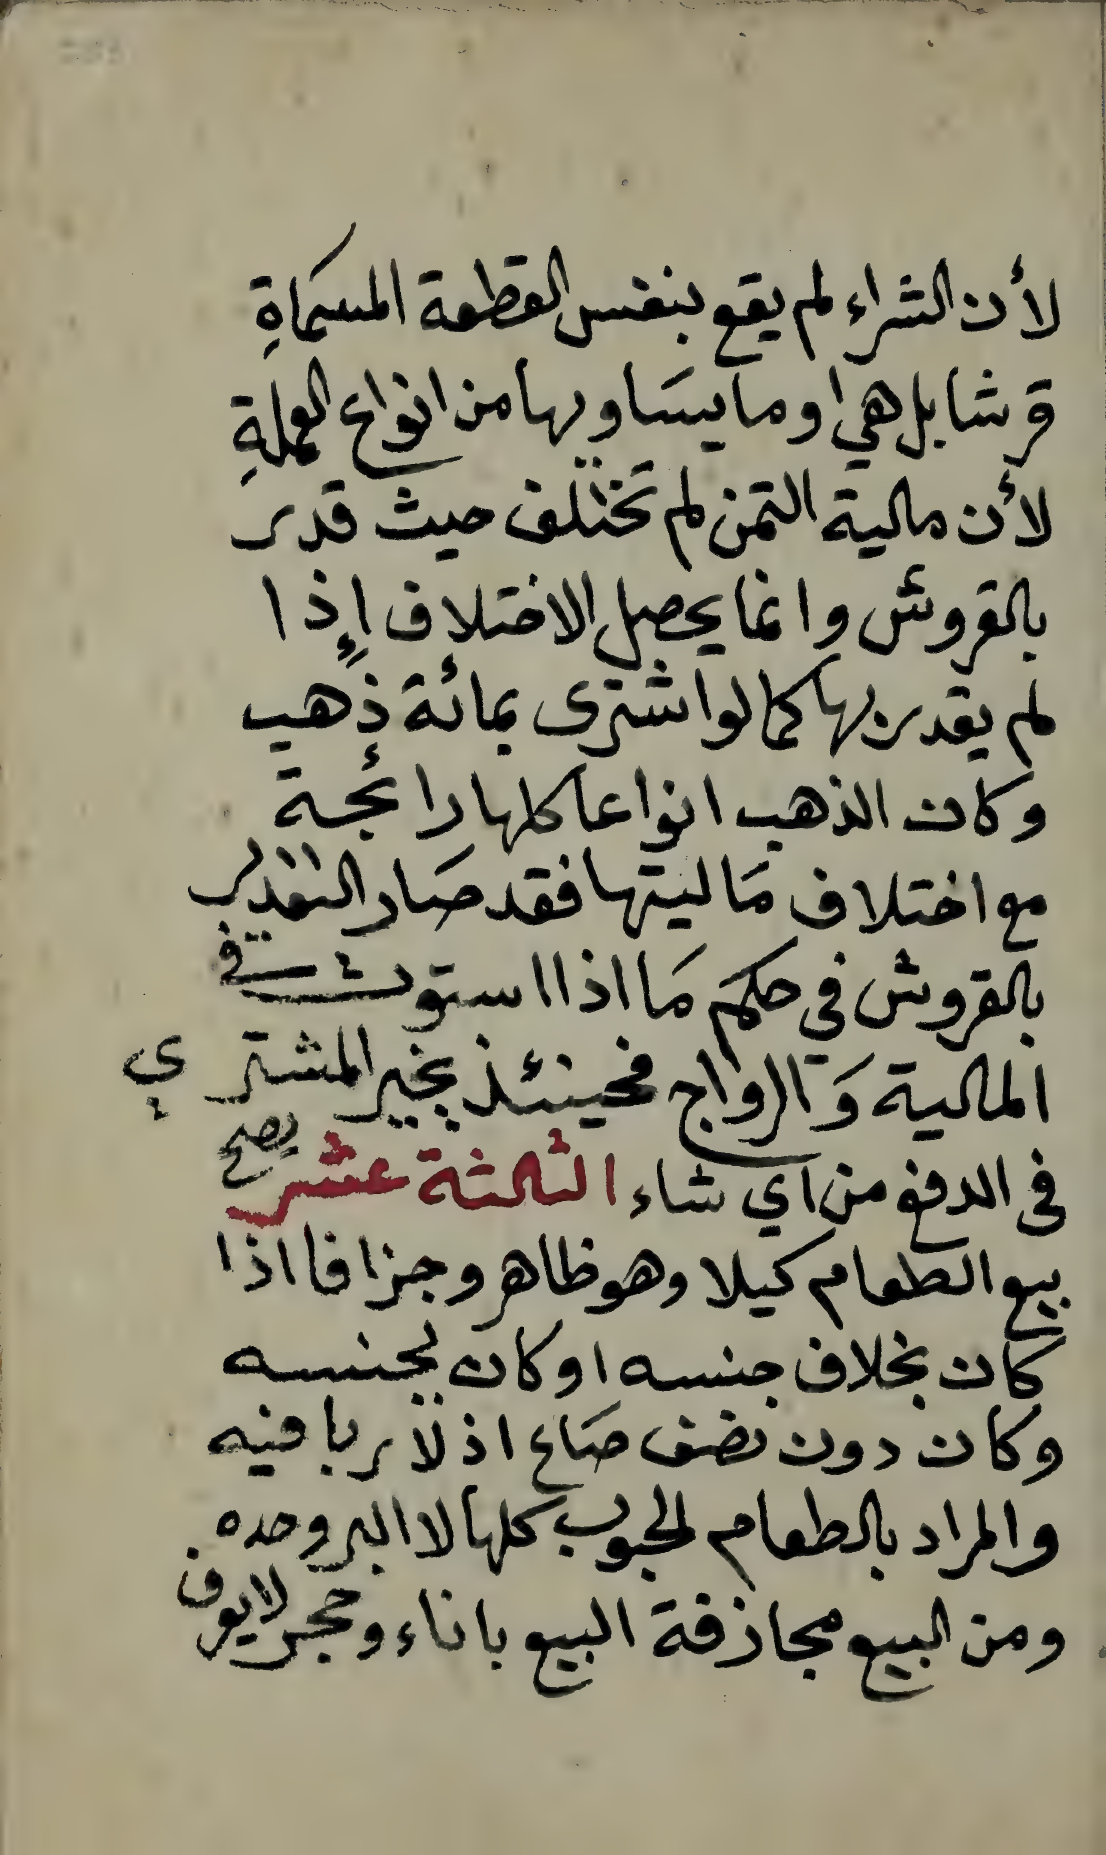 لأن الشراء لم يقع بنفس القطعة المسماةِ
قرشا بل هي او ما يساويها من انواع العملةِ
لأن مالية الثمن لم تختلف حيث قدر
بالقروش وانما يحصل الاختلاف إذا
لم يقدر بها كما لو اشترى بمائة ذهب
وكان الذهب انواعا كلها رائجة
مع اختلاف مَاليتها فقد صَار التقدير
بالقروش في حكم مَا اذا استوت في
المالية وَالرواج فحينئذ يخير المشتري
في الدفع من اي شاء الثالثة عشر يصح
بيع الطعام كيلا وهو ظاهر وجزافا اذا
كان بخلاف جنسه او كان بجنسه
وكان دون نصف صَاع اذ لا ربا فيه
والمراد بالطعام الحبوب كلها لا البر وحده
ومن البيع مجازفة البيع باناء وحجر لا يعرف